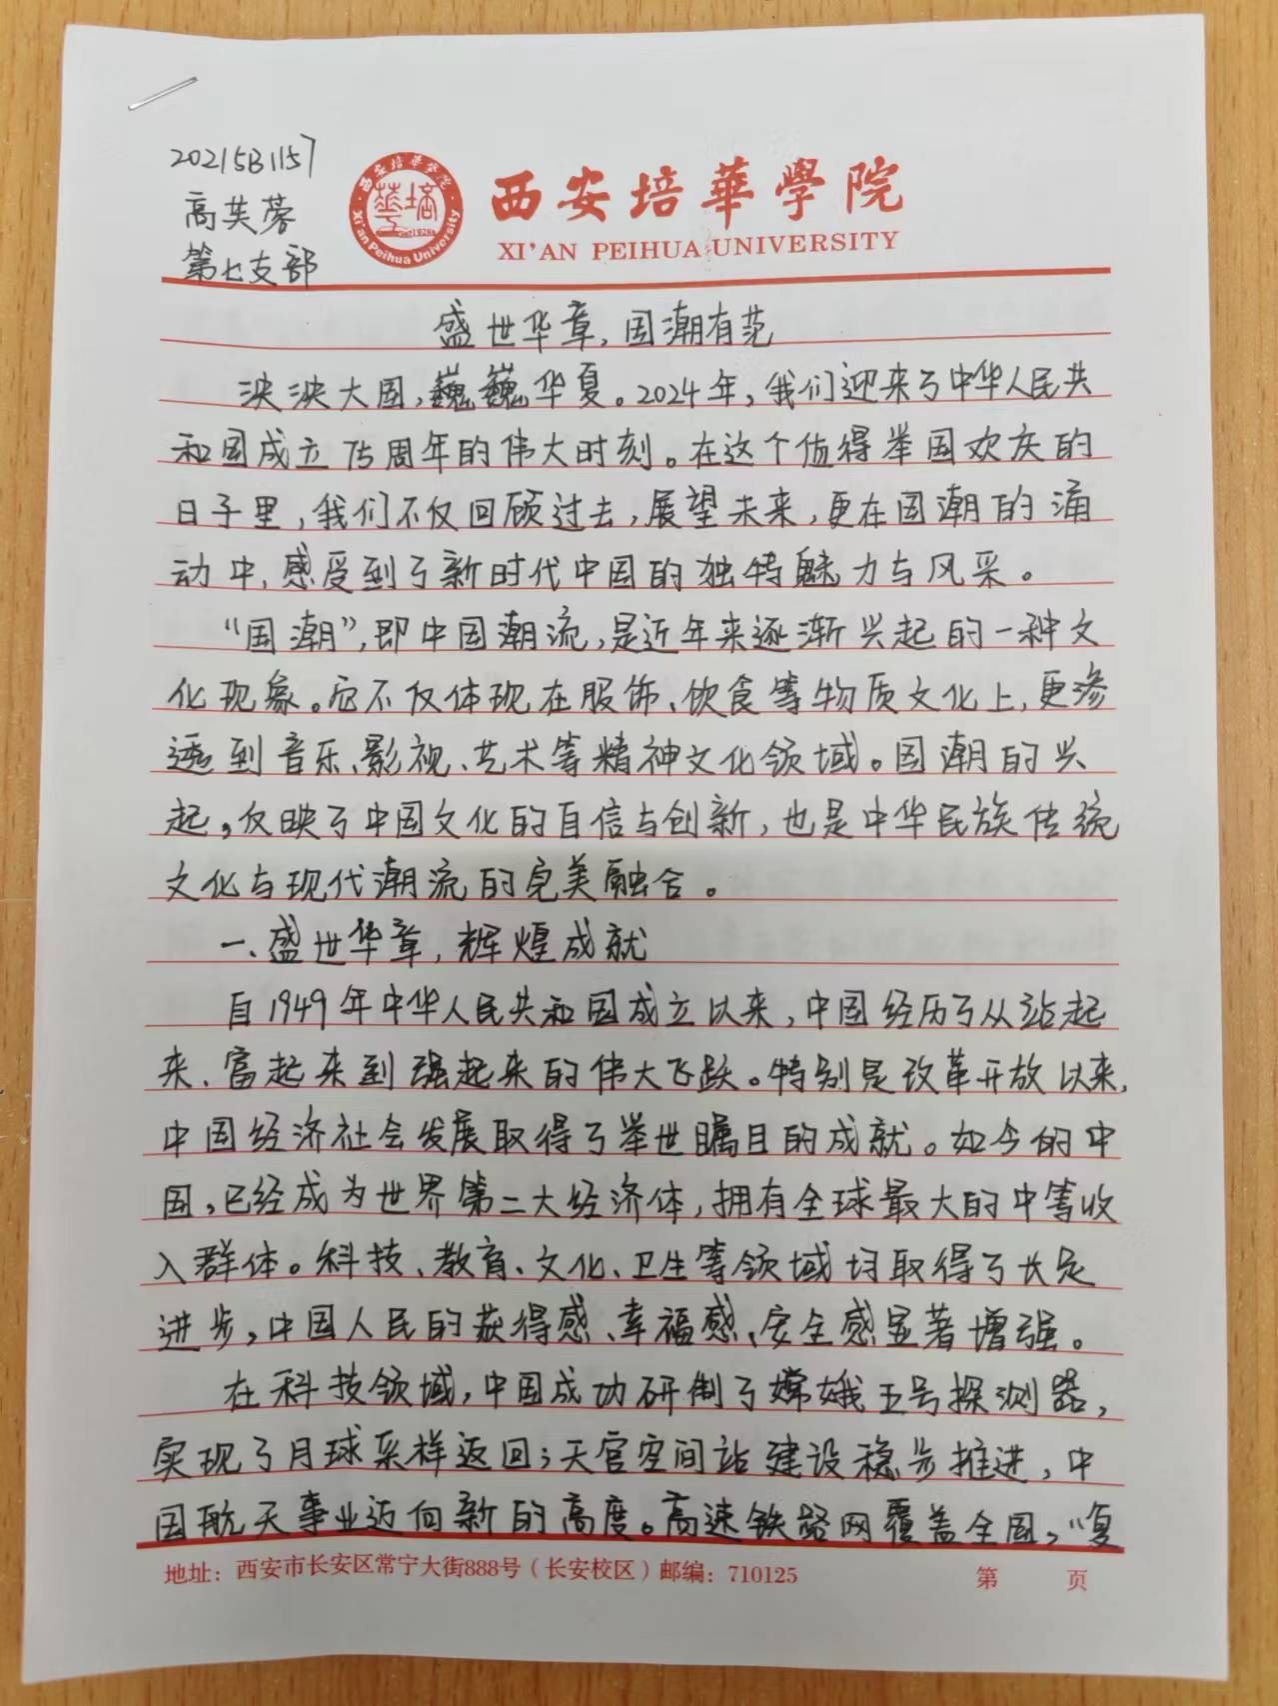 20215B1157
高芙蓉
第七支部
西安培華學院
XI'AN PEIHUA UNIVERSITY
西安培华学院
Xi'an Peihua University
盛世华章,国潮有范
泱泱大国,巍巍华夏。2024年,我们迎来了中华人民共
和国成立75周年的伟大时刻。在这个值得举国欢庆的
日子里,我们不仅回顾过去,展望未来,更在国潮的涌
动中,感受到了新时代中国的独特魅力与风采。
“国潮”,即中国潮流,是近年来逐渐兴起的一种文
化现象。它不仅体现在服饰、饮食等物质文化上,更渗
透到音乐、影视、艺术等精神文化领域。国潮的兴
起,反映了中国文化的自信与创新,也是中华民族传统
文化与现代潮流的完美融合。
一、盛世华章,辉煌成就
自1949年中华人民共和国成立以来,中国经历了从站起
来、富起来到强起来的伟大飞跃。特别是改革开放以来,
中国经济社会发展取得了举世瞩目的成就。如今的中
国,已经成为世界第二大经济体,拥有全球最大的中等收
入群体。科技、教育、文化、卫生等领域均取得了长足
进步,中国人民的获得感、幸福感、安全感显著增强。
在科技领域,中国成功研制了嫦娥五号探测器,
实现了月球采样返回;天宫空间站建设稳步推进,中
国航天事业迈向新的高度。高速铁路网覆盖全国,“复
地址：西安市长安区常宁大街888号（长安校区）邮编：710125
第 页